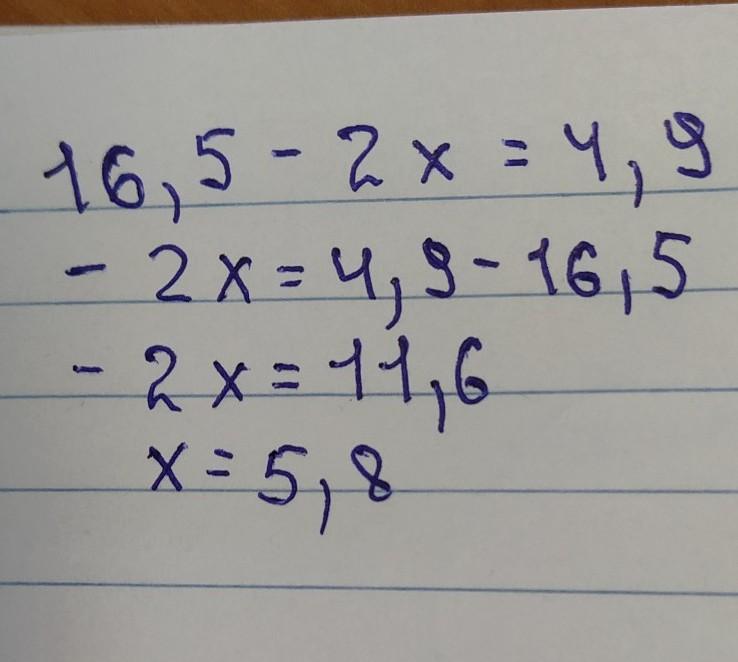 16,5 - 2x = 4,9
- 2x = 4,9 - 16,5
- 2x = 11,6
x = 5,8